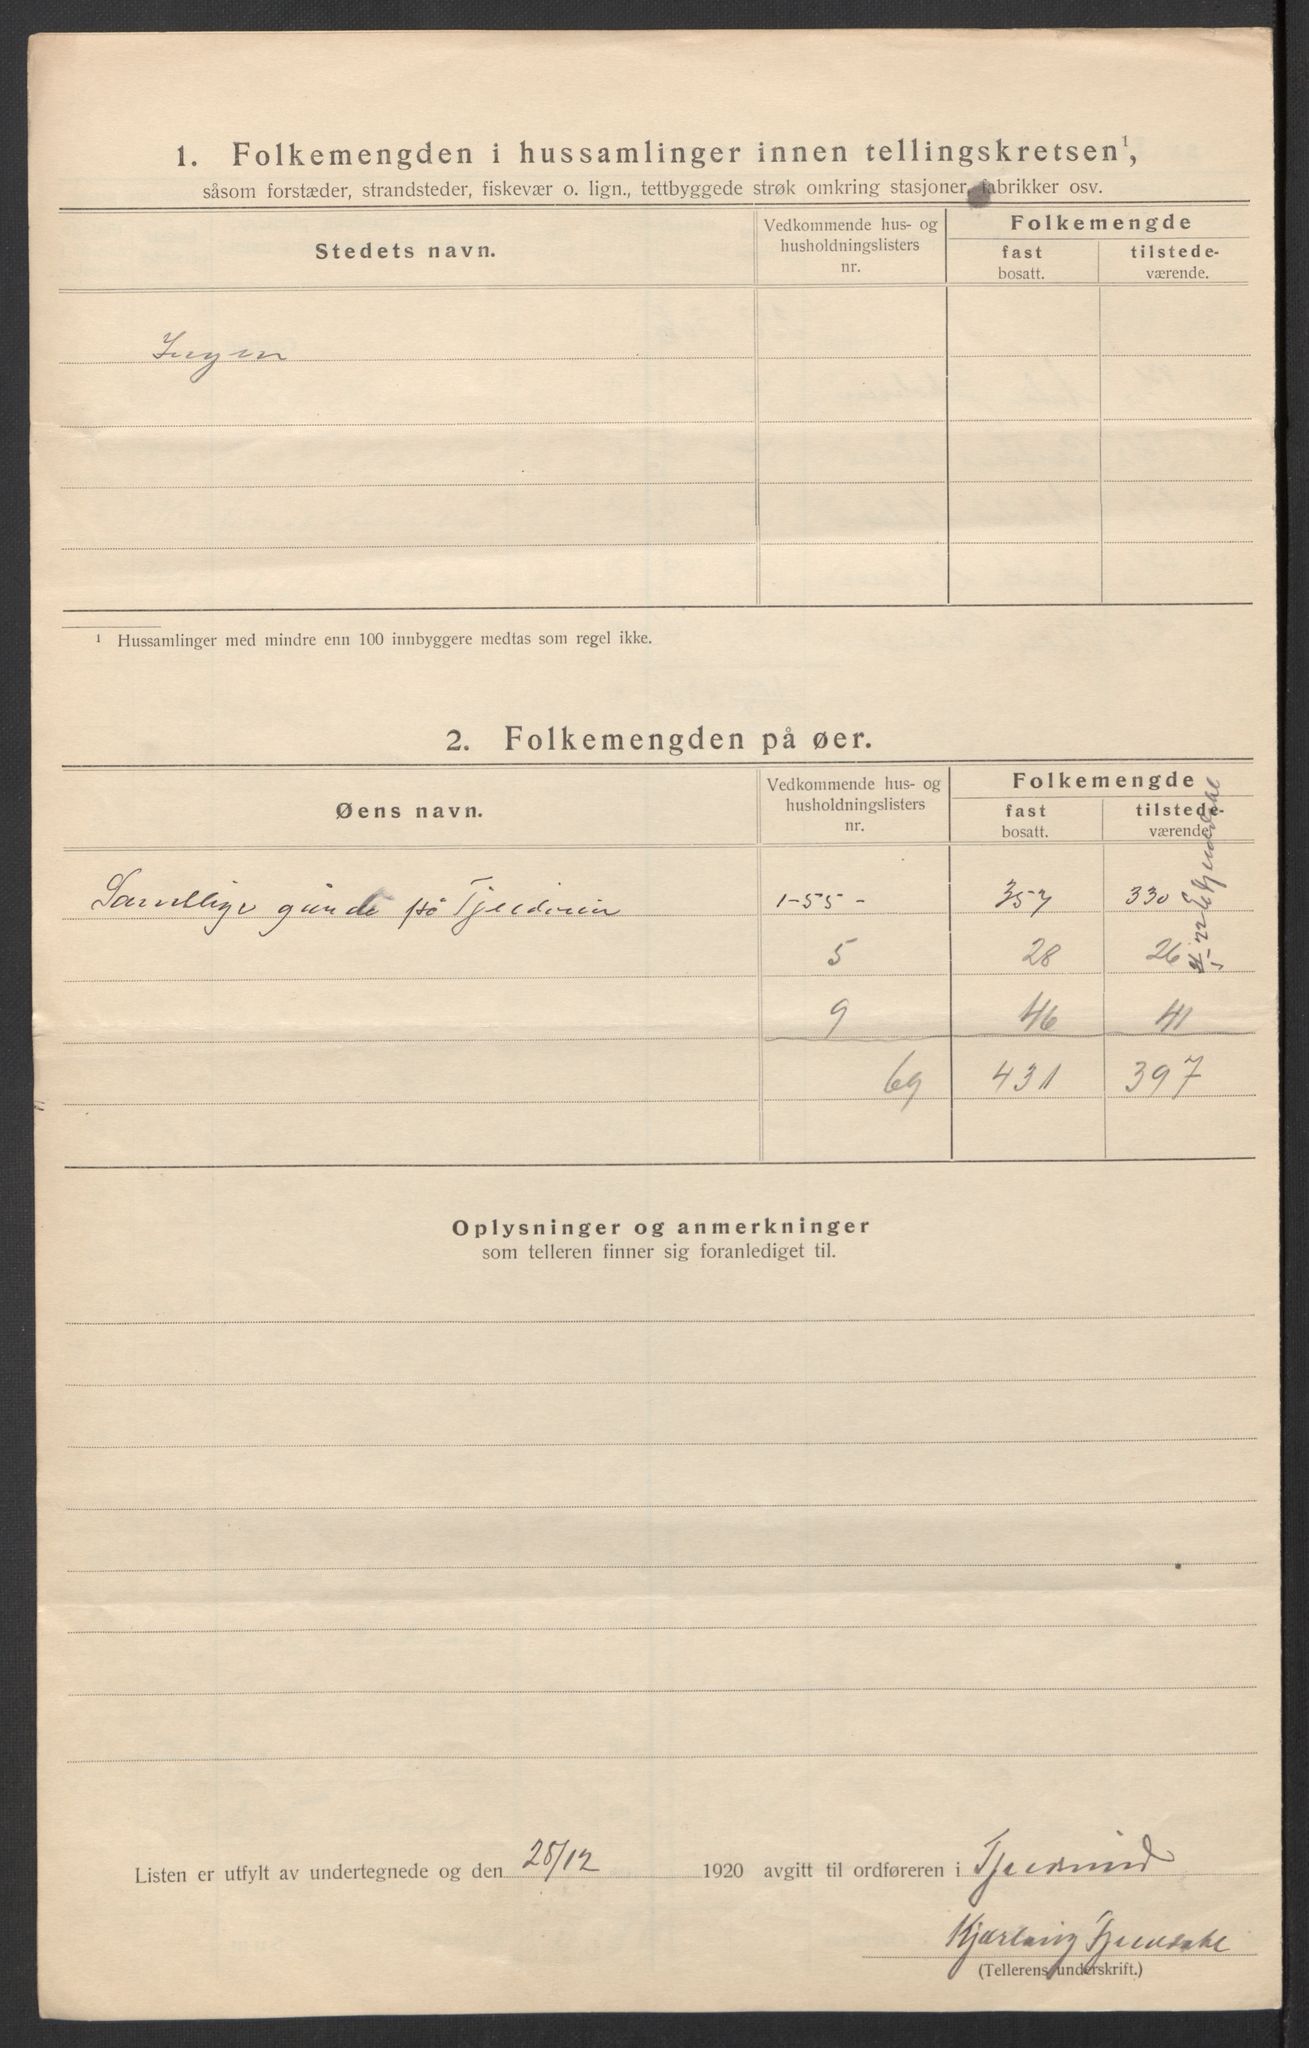 1. Folkemengden i hussamlinger innen tellingskretsen¹,
såsom forstæder, strandsteder, fiskevær o. lign., tettbyggede strøk omkring stasjoner, fabrikker osv.
Stedets navn.
Vedkommende hus- og husholdningslisters nr.
Folkemengde
fast bosatt.
tilstede-værende.
Ingen
¹ Hussamlinger med mindre enn 100 innbyggere medtas som regel ikke.
2. Folkemengden på øer.
Øens navn.
Vedkommende hus- og husholdningslisters nr.
Folkemengde
fast bosatt.
tilstede-værende.
Samtlige på 1-55- 357 330
5 28 26
9 46 41
69 431 397
Oplysninger og anmerkninger
som telleren finner sig foranlediget til.
Listen er utfylt av undertegnede og den 28/12 1920 avgitt til ordføreren i
(Tellerens underskrift.)